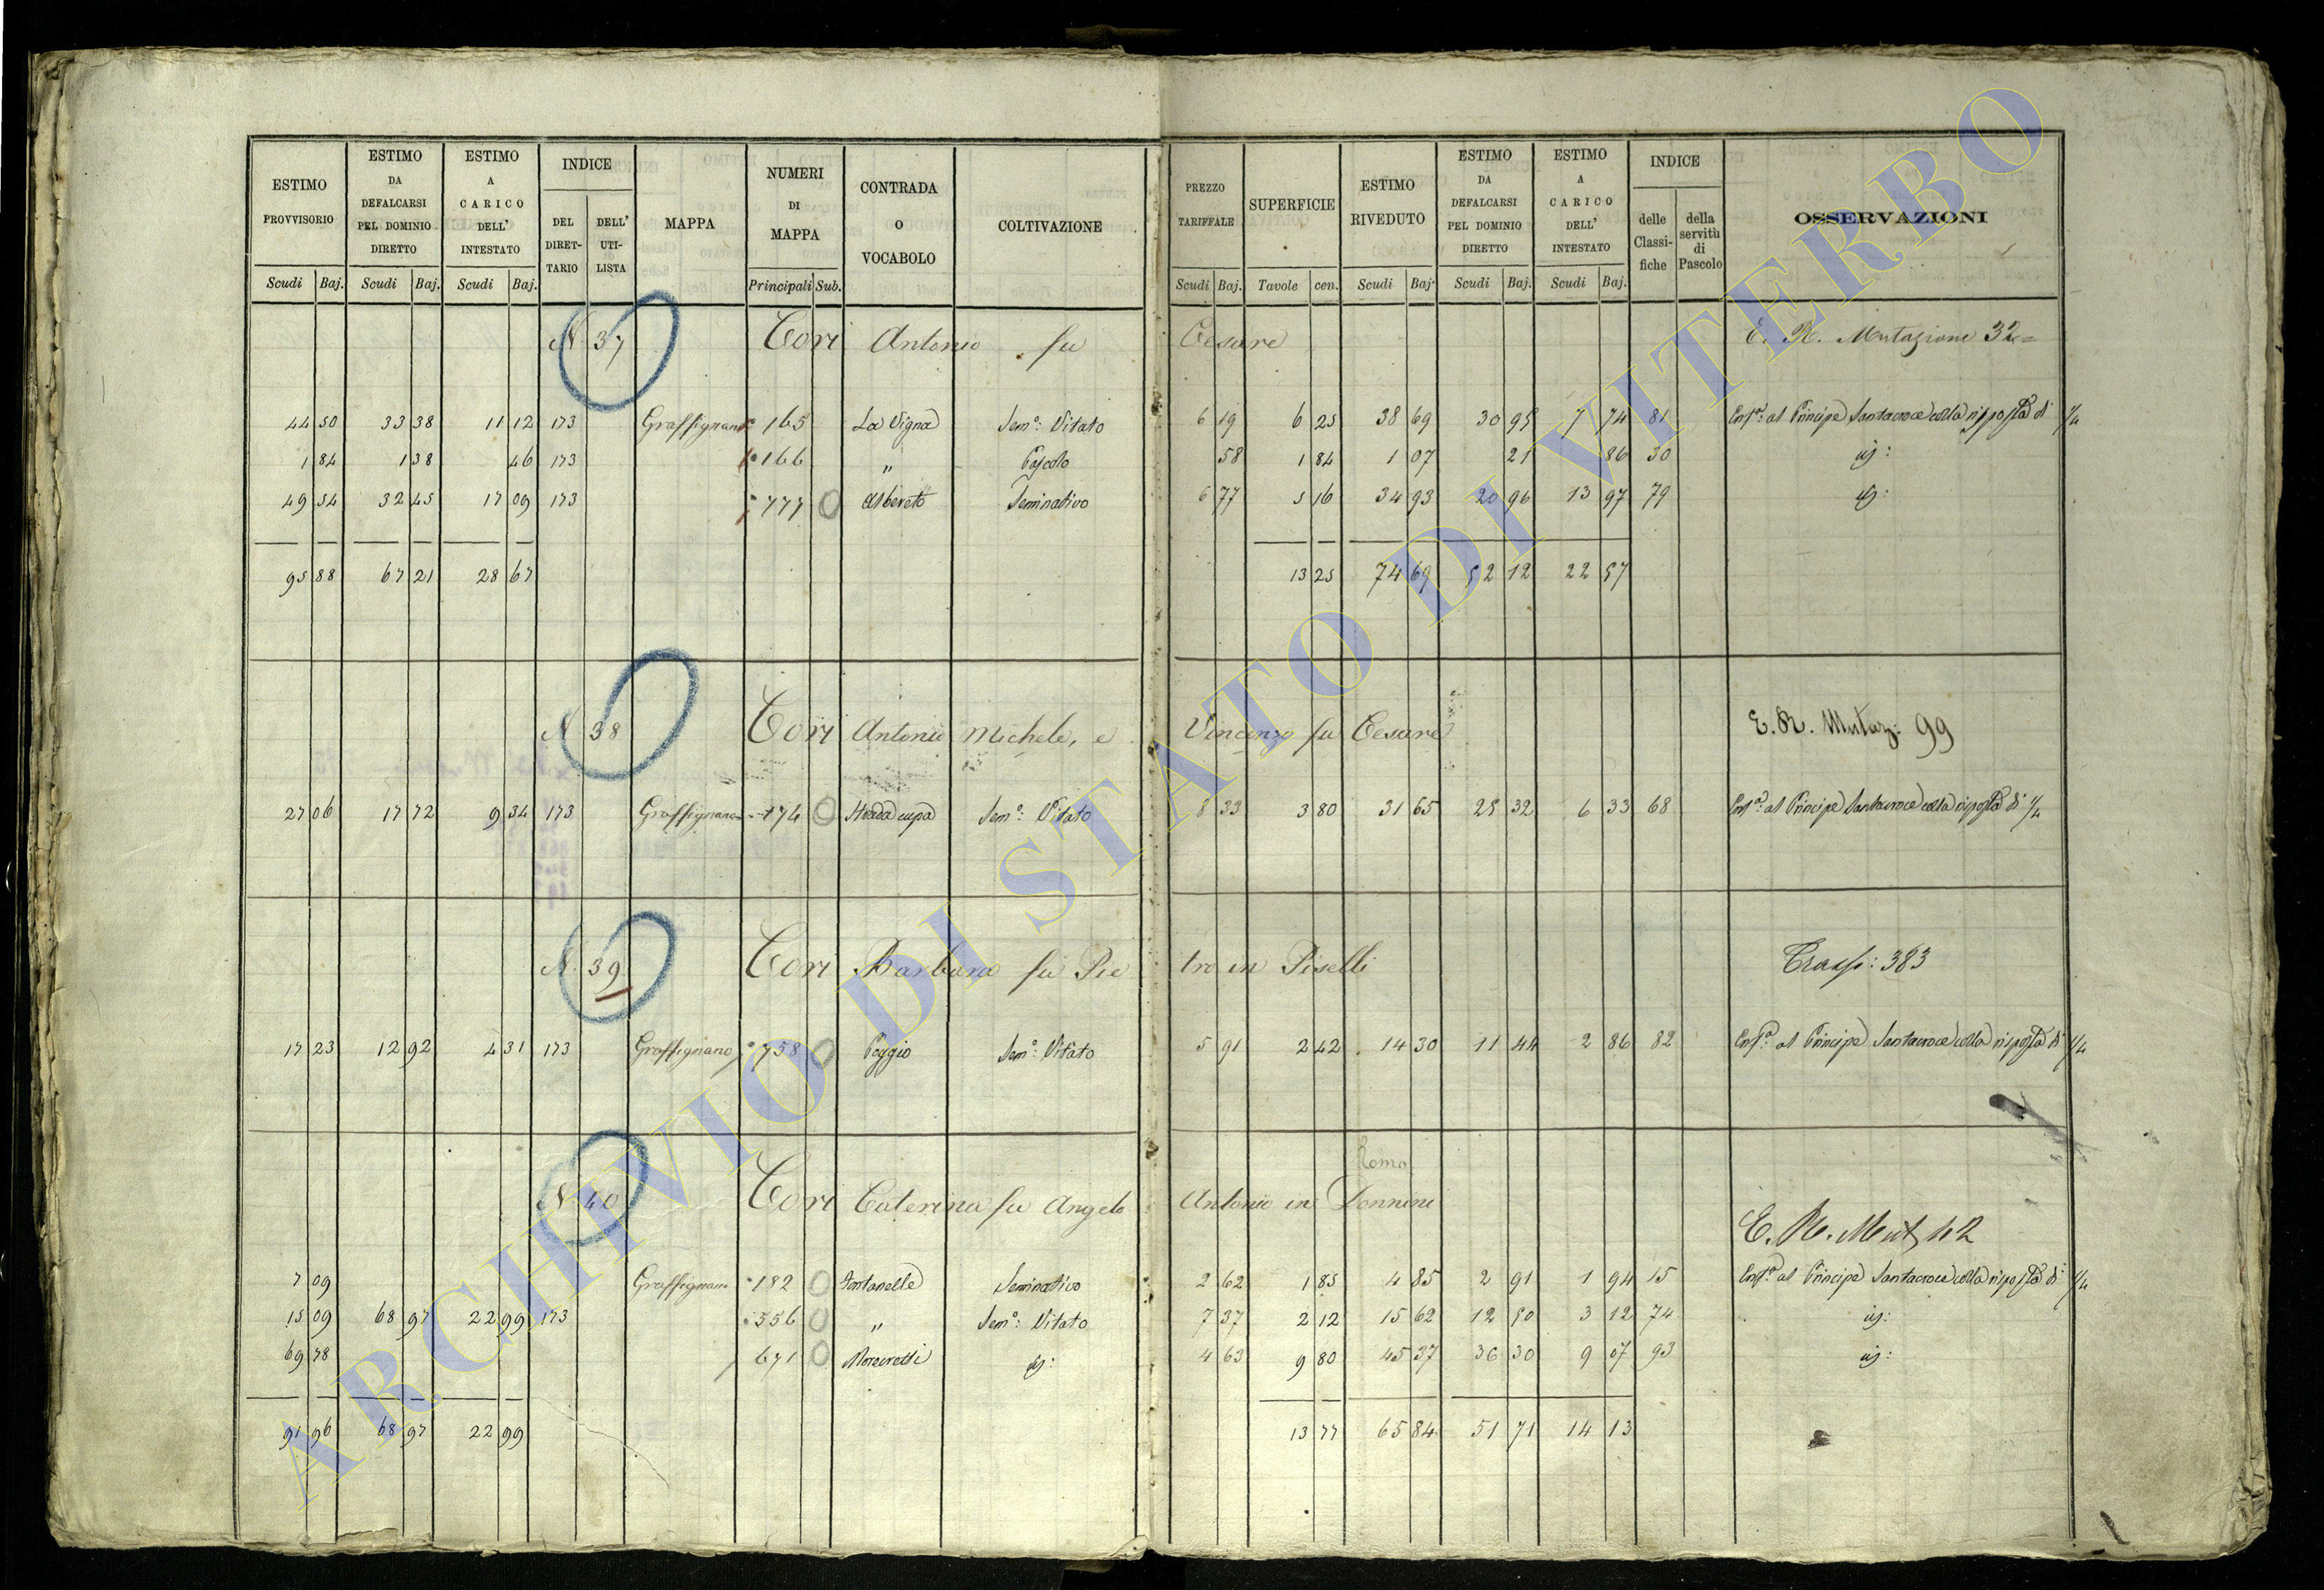 ESTIMO PROVVISORIO ESTIMO DA DEFALCARSI PEL DOMINIO DIRETTO ESTIMO A CARICO DELL' INTESTATO INDICE DEL DIRET-TARIO DELL' UTI-LISTA MAPPA NUMERI DI MAPPA CONTRADA O VOCABOLO COLTIVAZIONE PREZZO TARIFFALE SUPERFICIE ESTIMO RIVEDUTO ESTIMO DA DEFALCARSI PEL DOMINIO DIRETTO ESTIMO A CARICO DELL' INTESTATO INDICE delle Classi-fiche della servitù di Pascolo OSSERVAZIONI
Scudi Baj. Scudi Baj. Scudi Baj. Principali Sub. Scudi Baj. Tavole cen. Scudi Baj. Scudi Baj. Scudi Baj.
N 37 Cori Antonio fu Cesare E. R. Mutazione 32
44 50 33 38 11 12 173 Graffignano 165 La Vigna Sem.o: Vitato 6 19 6 25 38 69 30 95 7 74 81 Enf.a al Principe Santacroce colla risposta di 1/4
1 84 1 38 46 173 166 " Pascolo 58 1 84 1 07 21 86 30 id:
49 54 32 45 17 09 173 777 Albereto Seminativo 6 77 5 16 34 93 20 96 13 97 79 id:
95 88 67 21 28 67 13 25 74 69 52 12 22 57
N 38 Cori Antonio Michele, e Vincenzo fu Cesare E. R. Mutaz: 99
27 06 17 72 9 34 173 Graffignano 174 Strada cupa Sem.o: Vitato 8 33 3 80 31 65 25 32 6 33 68 Enf.a al Principe Santacroce colla risposta di 1/4
N. 39 Cori Barbara fu Pietro in Piselli Trasp: 383
17 23 12 92 4 31 173 Graffignano 758 Poggio Sem.o: Vitato 5 91 2 42 14 30 11 44 2 86 82 Enf.a al Principe Santacroce colla risposta di 1/4
Roma
N 40 Cori Caterina fu Angelo Antonio in Donnini
E. R. Mut 42
7 09 Graffignano 182 Fontanelle Seminativo 2 62 1 85 4 85 2 91 1 94 15 Enf.a al Principe Santacroce colla risposta di 1/4
15 09 68 97 22 99 173 556 " Sem.o: Vitato 7 37 2 12 15 62 12 50 3 12 74 id:
69 78 671 id: 4 63 9 80 45 37 36 30 9 07 93 id:
91 96 68 97 22 99 13 77 65 84 51 71 14 13
ARCHIVIO DI STATO DI VITERBO